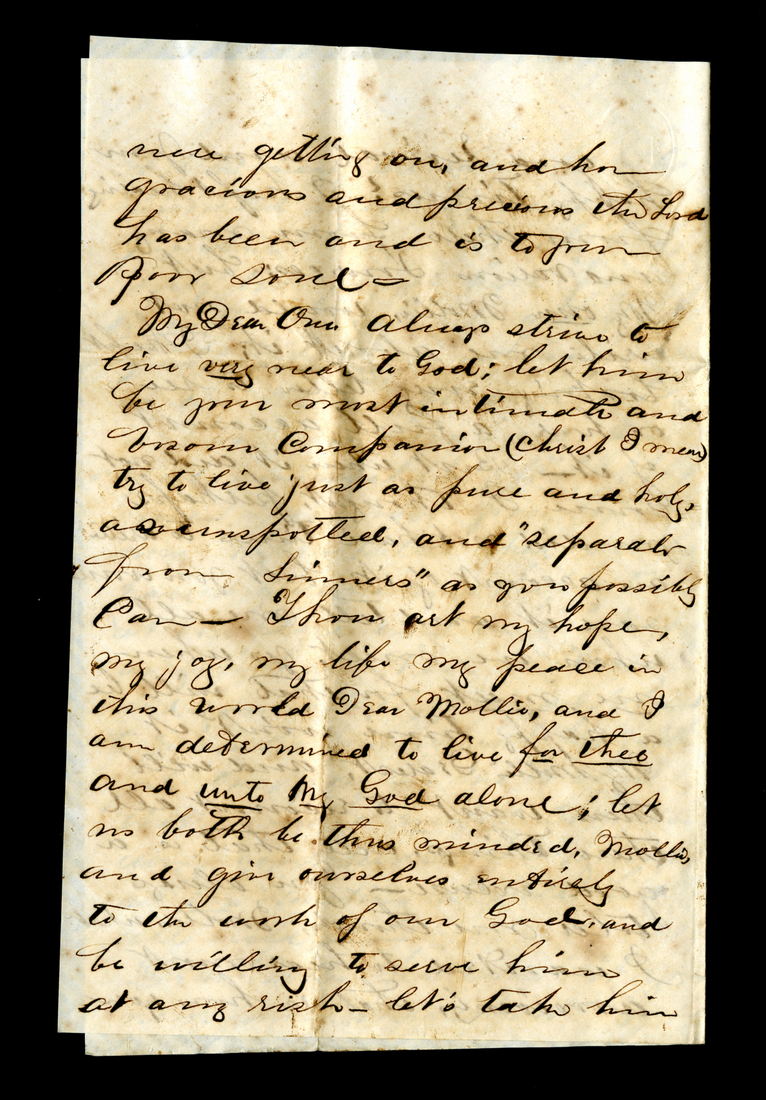 were getting on, and how
gracious and precious the Lord
has been and is to your
Poor Soul=
My Dear One Always strive to
live very near to God; let him
be your most intimate and
bosom Companion (Christ I mean)
try to live just as pure and holy,
as unspotted, and "separate
from Sinners" as you possibly
Can— Thou art my hope,
my joy, my life my peace in
this world Dear Mollie, and I
am determined to live for thee
and unto my God alone; let
us both be thus minded, Mollie,
and give ourselves entirely
to the work of our God, and
be willing to serve him
at any risk— let's take him